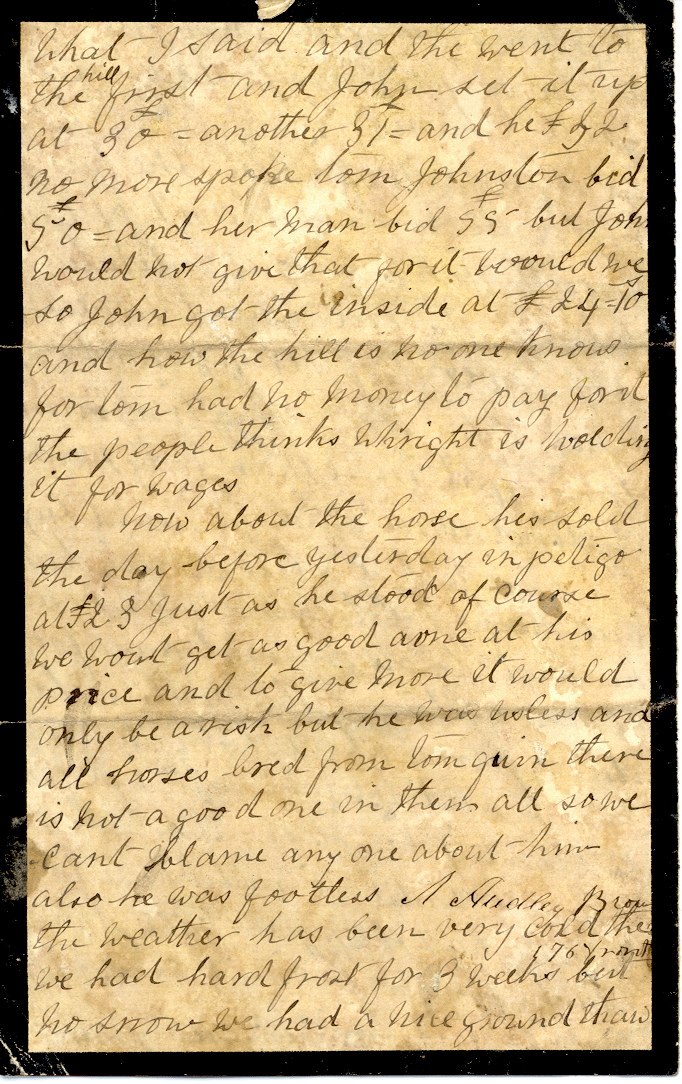 what I said and the went to
the hill first and John set it up
at £30 = another 31 £ = and he £32
no more spoke tom Johnston bid
£50 = and her man bid £55 but John
would not give that for it would we
so John got the inside at £24=10s
and how the hill is no one knows
for tom had no money to pay for it
the people thinks Whright is holding
it for wages
Now about the horse his sold
the day before yesterday in petigo
at £23 Just as he stood of course
we wont get as good aone at his
price and to give more it would
only be a risk but he was usless and
all horses bred from tom guin there
is not a good one in them all so we
cant blame any one about him
also he was footless A Audley Brow
the weather has been very cold the
176 Front
we had hard frost for 3 weeks but
no snow we had a nice ground thaw